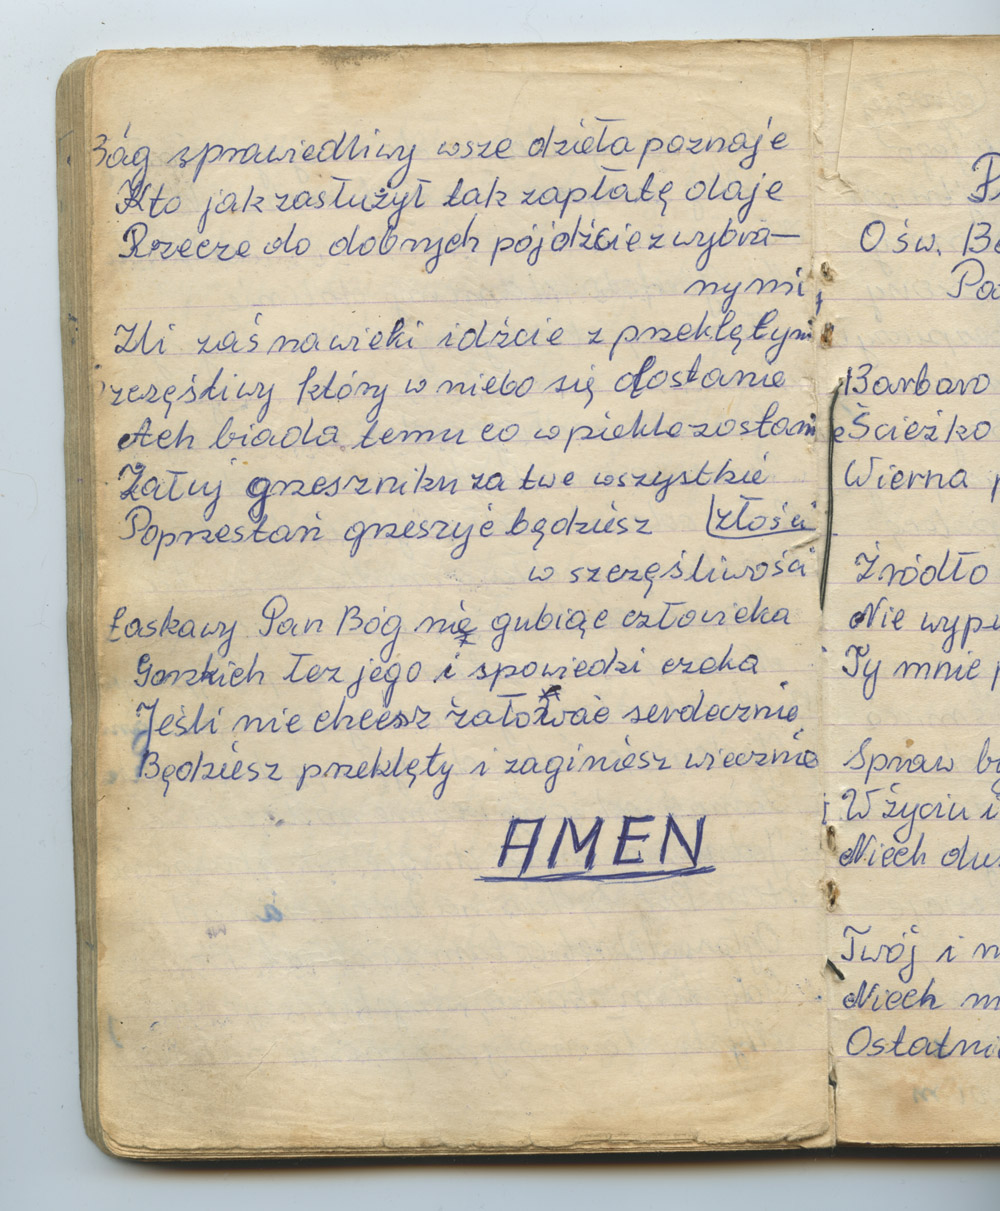 Bóg sprawiedliwy wsze dzieła poznaje
Kto jak zasłużył tak zapłatę daje
Rzecze do dobrych pójdźcie z wybra-
nymi
Źli zaś na wieki idźcie z przeklętymi
szczęśliwy który w niebo się dostanie
Ach biada temu co w piekle zostanie
Żałuj grzeszniku za twe wszystkie
złości
Poprzestań grzeszyć będziesz
w szczęśliwości
Łaskawy Pan Bóg nie gubiąc człowieka
Gorzkich łez jego i spowiedzi czeka
Jeśli nie chcesz żałować serdecznie
Będziesz przeklęty i zaginiesz wiecznie
AMEN
O św. Ba
Barbaro
Ścieżko
Wierna p
Źródło
Nie wypu
Ty mnie p
Spraw by
W życiu i
Niech dus
Twój i m
Niech m
Ostatni